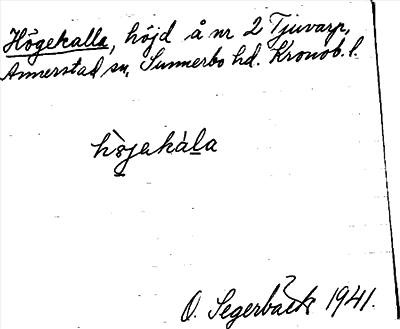 Högekalla, höjd å nr 2 Tjuvarp,
Annerstad sn, Sunnerbo hd. Kronob. l.
O. Segerbäck 1941.